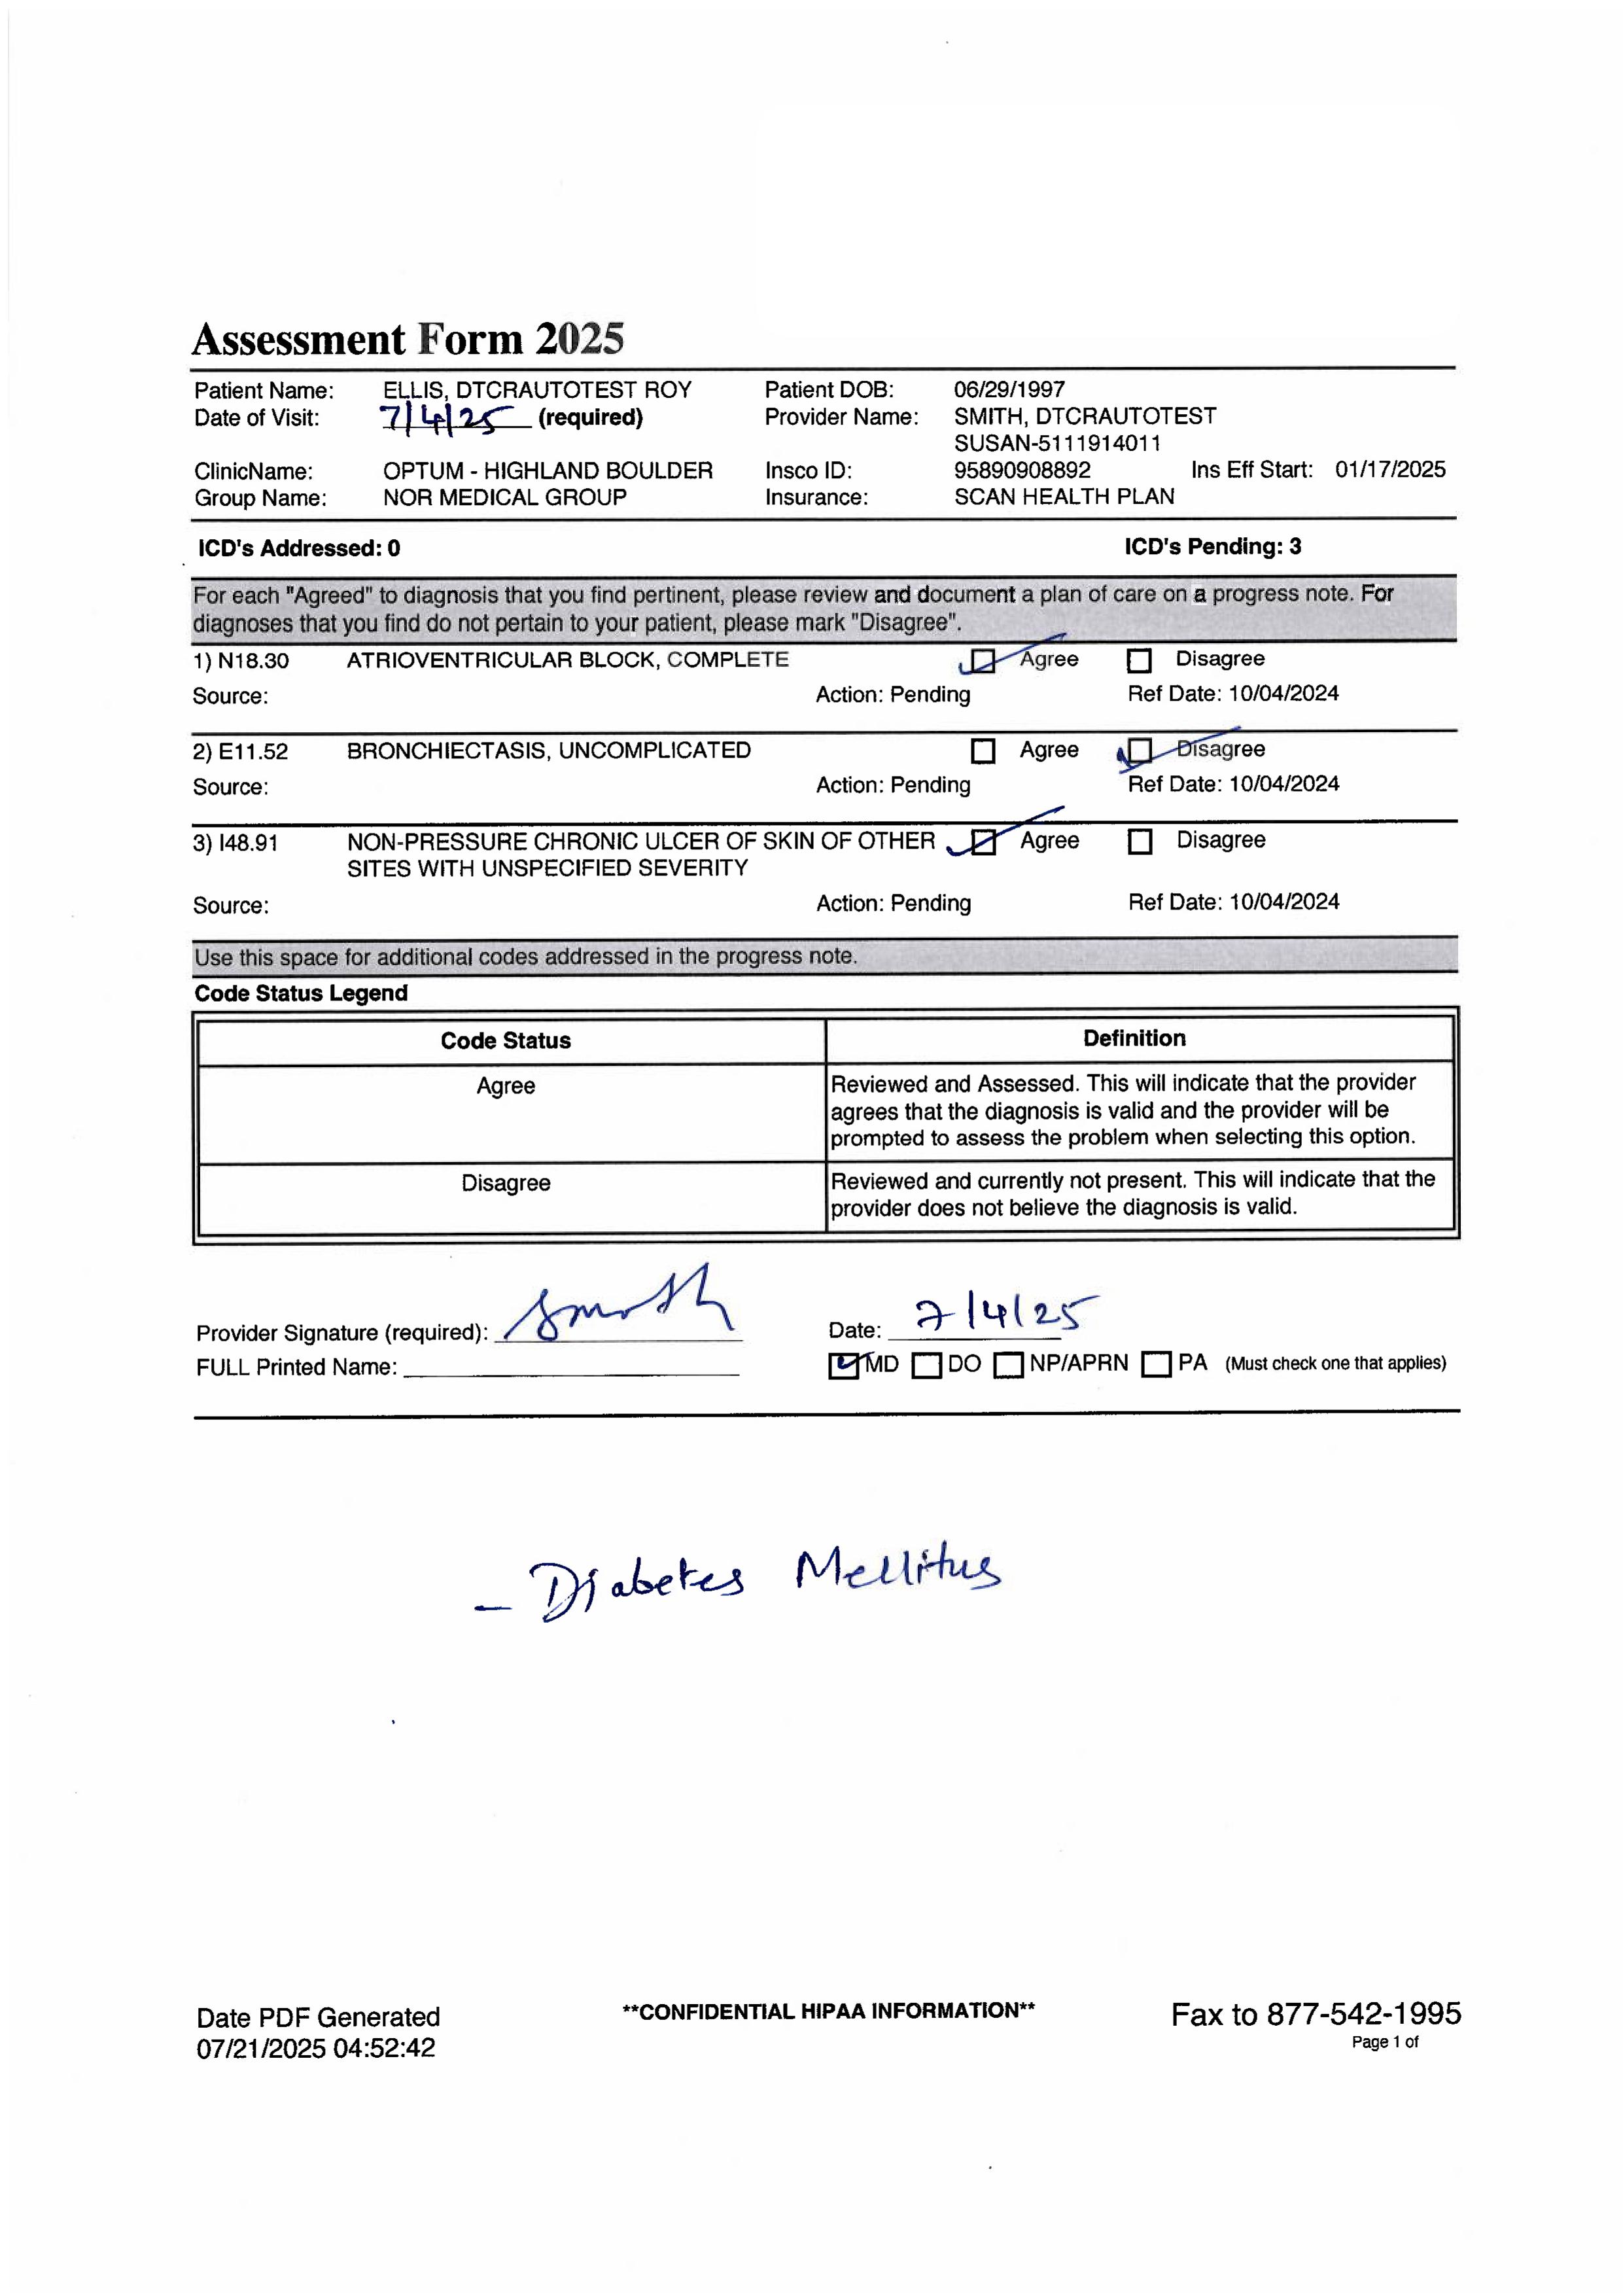 Assessment Form 2025
Patient Name: ELLIS, DTCRAUTOTEST ROY Patient DOB: 06/29/1997
Date of Visit: 7/4/25 (required) Provider Name: SMITH, DTCRAUTOTEST
SUSAN-5111914011
ClinicName: OPTUM - HIGHLAND BOULDER Insco ID: 95890908892 Ins Eff Start: 01/17/2025
Group Name: NOR MEDICAL GROUP Insurance: SCAN HEALTH PLAN
ICD's Addressed: 0 ICD's Pending: 3
For each "Agreed" to diagnosis that you find pertinent, please review and document a plan of care on a progress note. For
diagnoses that you find do not pertain to your patient, please mark "Disagree".
1) N18.30 ATRIOVENTRICULAR BLOCK, COMPLETE Agree Disagree
Source: Action: Pending Ref Date: 10/04/2024
2) E11.52 BRONCHIECTASIS, UNCOMPLICATED Agree Disagree
Source: Action: Pending Ref Date: 10/04/2024
3) I48.91 NON-PRESSURE CHRONIC ULCER OF SKIN OF OTHER Agree Disagree
SITES WITH UNSPECIFIED SEVERITY
Source: Action: Pending Ref Date: 10/04/2024
Use this space for additional codes addressed in the progress note.
Code Status Legend
Code Status Definition
Agree Reviewed and Assessed. This will indicate that the provider
agrees that the diagnosis is valid and the provider will be
prompted to assess the problem when selecting this option.
Disagree Reviewed and currently not present. This will indicate that the
provider does not believe the diagnosis is valid.
Provider Signature (required): Smith Date: 7/4/25
FULL Printed Name: MD DO NP/APRN PA (Must check one that applies)
- Diabetes Mellitus
Date PDF Generated **CONFIDENTIAL HIPAA INFORMATION** Fax to 877-542-1995
07/21/2025 04:52:42 Page 1 of